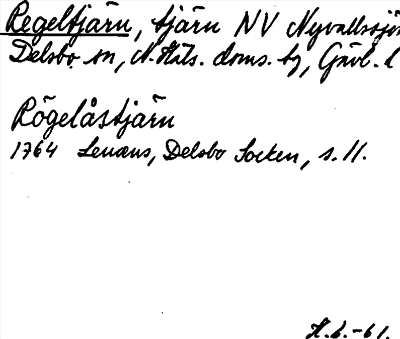 Regeltjärn, tjärn NV Nyvallssjön
Delsbo sn, N. Häls. doms. tg, Gävl. l
Rögelåstjärn
1764 Lenæus, Delsbo Socken, s. 11.
H.b.-61.